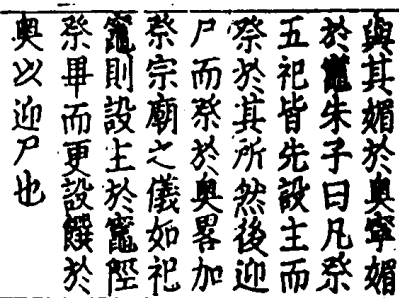 與其媚於奧寧媚
於竈朱子曰凡祭
五祀皆先設主而
祭於其所然後迎
尸而祭於奧畧加
祭宗廟之儀如祀
竈則設主於竈陘
祭畢而更設饌於
奧以迎尸也